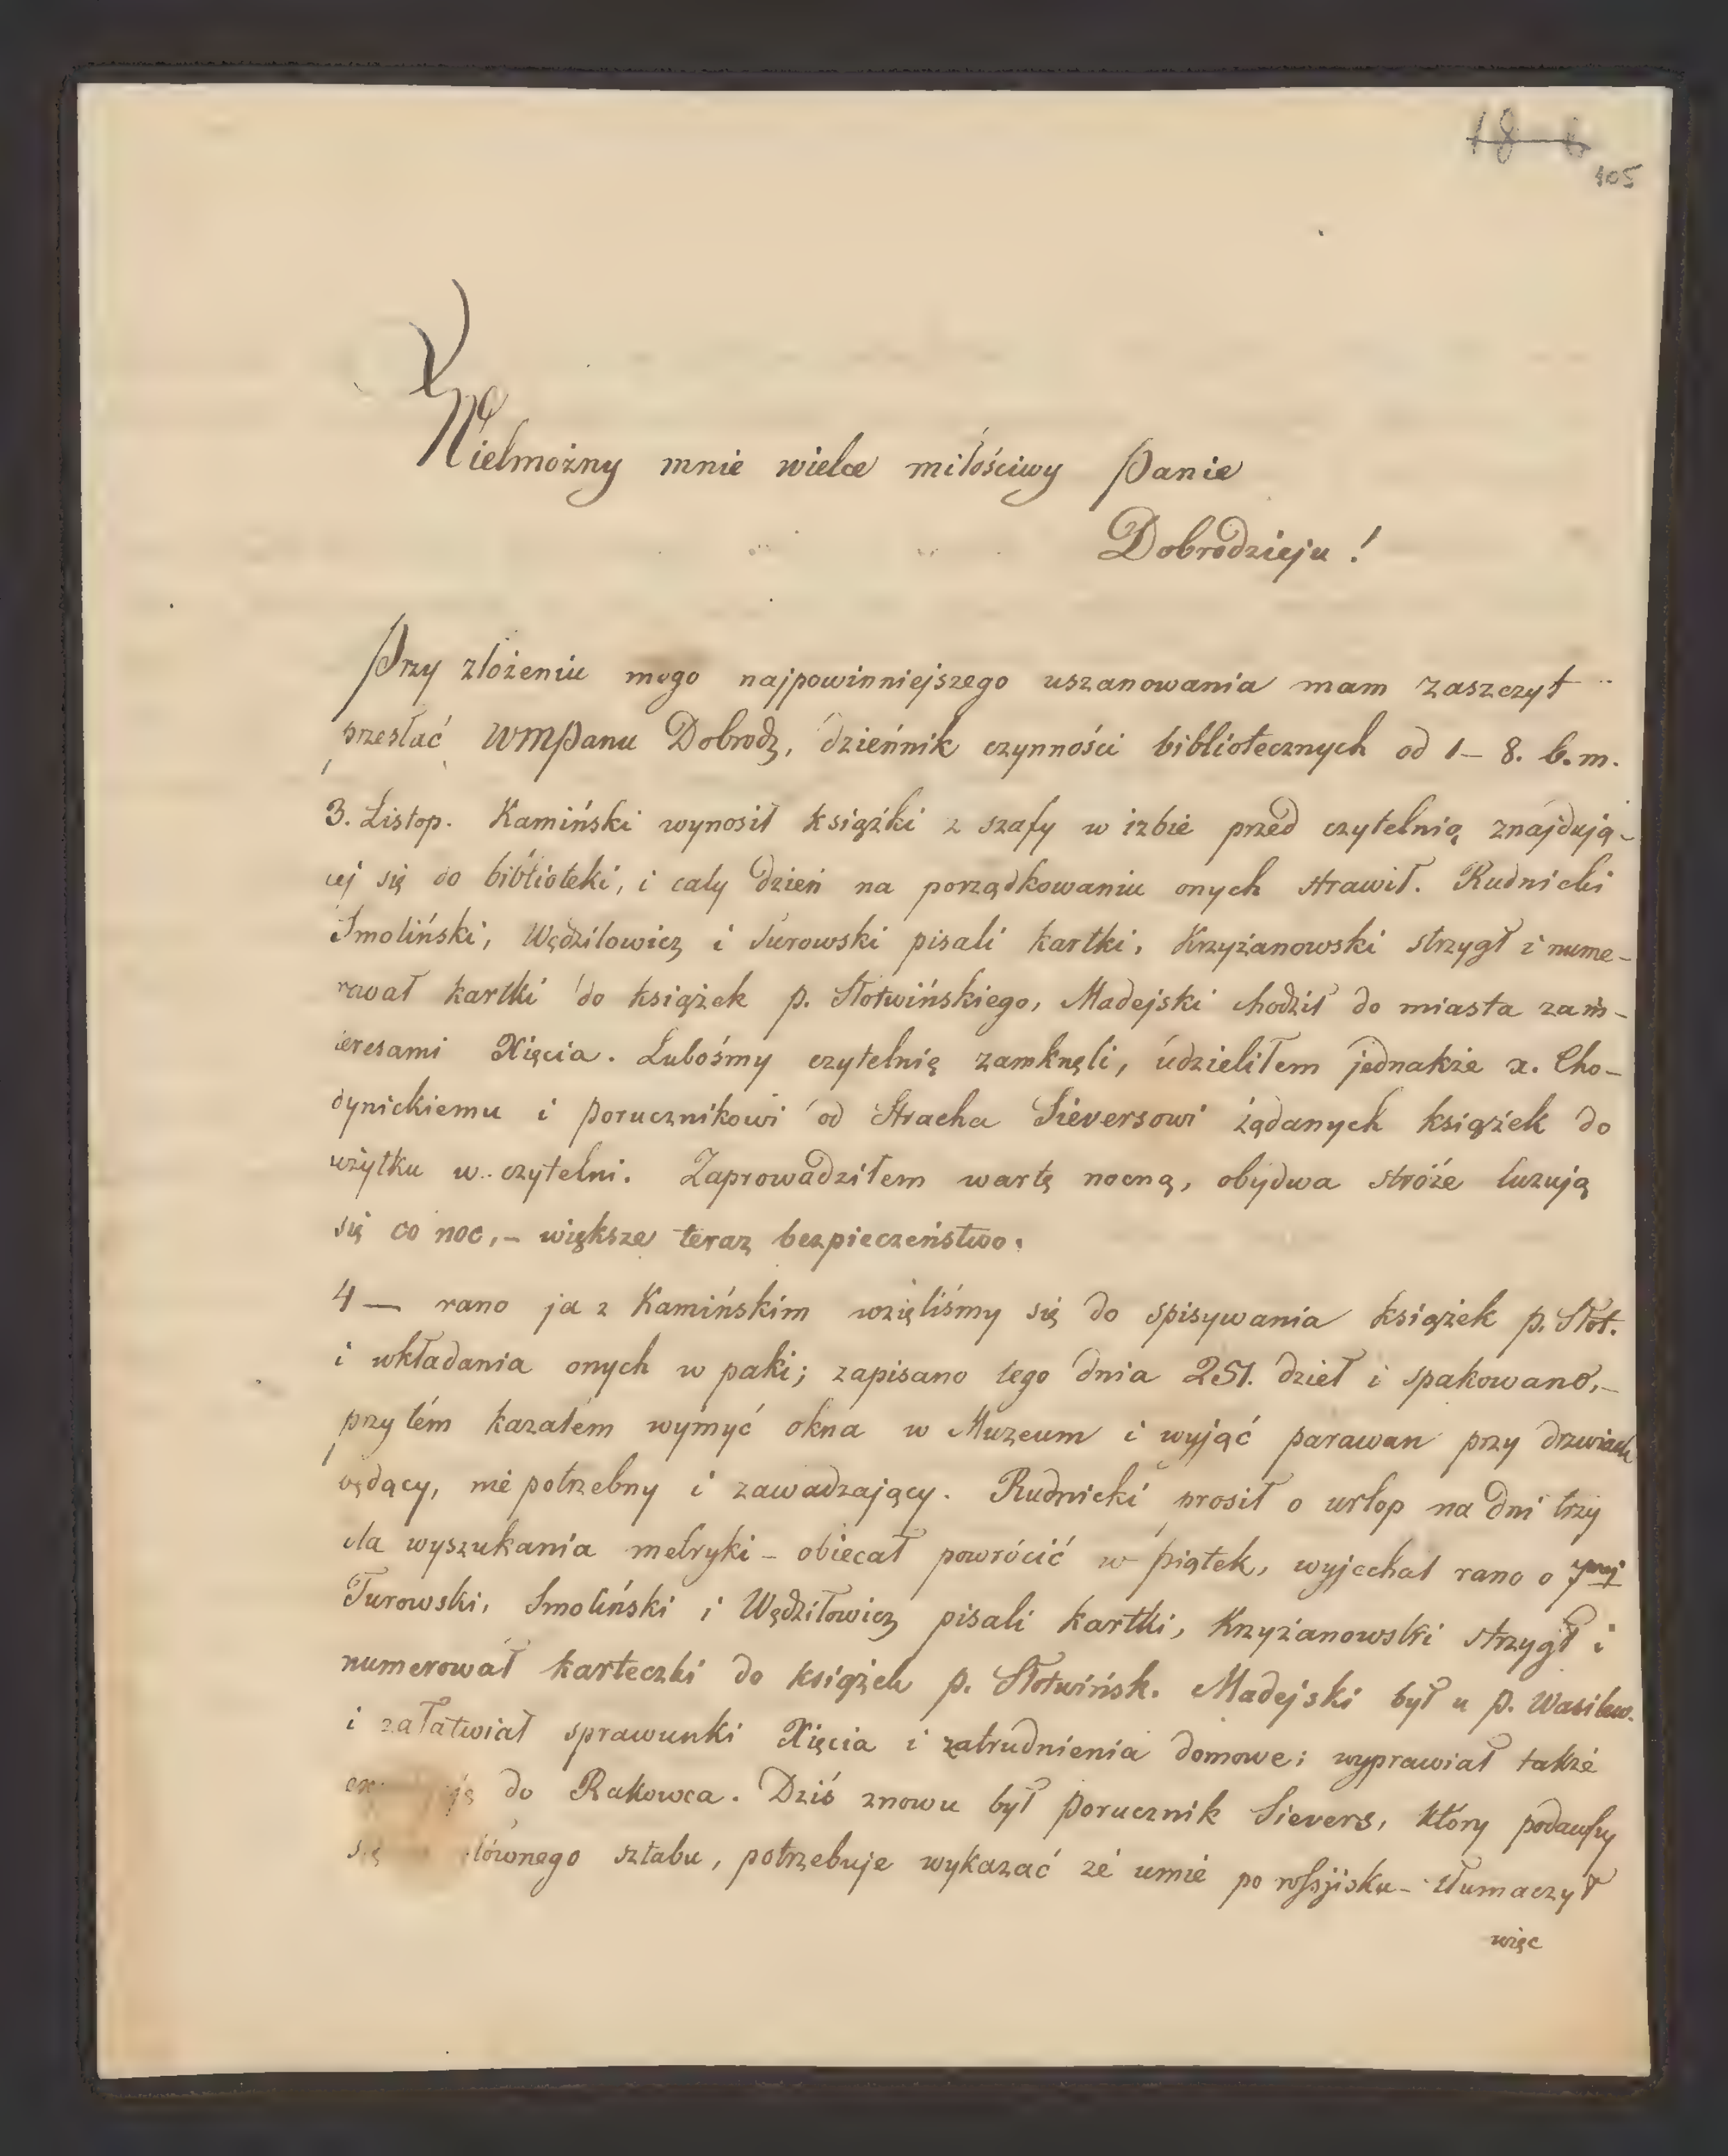 105
Wielmożny mnie wielce miłościwy Panie
Dobrodzieju!
Przy złożeniu mego najpowinniejszego uszanowania mam zaszczyt
przesłać WMPanu Dobrodz, dzieńnik czynności bibliotecznych od 1 – 8. b.m.
3. Listop. Kamiński wynosił książki z szafy w izbie przed czytelnią znajdują-
cej się do biblioteki, i cały dzień na porządkowaniu onych strawił. Rudnicki
Smoliński, Wędziłowicz i Turowski pisali kartki, Krzyżanowski strzygł i nume-
rował kartki do książek p. Słotwińskiego, Madejski chodził do miasta za in-
teresami Xięcia. Lubośmy czytelnię zamknęli, udzieliłem jednakże x. Cho-
dynickiemu i porucznikowi od Stracha Sieversowi żądanych książek do
użytku w czytelni. Zaprowadziłem wartę nocną, obydwa stróże luzują
się co noc,– większe teraz bezpieczeństwo.
4 — rano ja z Kamińskim wzięliśmy się do spisywania książek p. Słot.
i wkładania onych w paki; zapisano tego dnia 251. dzieł i spakowano,–
przytém kazałem wymyć okna w Muzeum i wyjąć parawan przy drzwiach
będący, nie potrzebny i zawadzający. Rudnicki prosił o urlop na dni trzy
dla wyszukania metryki – obiecał powrócić w piątek, wyjechał rano o 7mej
Turowski, Smoliński i Wędziłowicz pisali kartki, Krzyżanowski strzygł i
numerował karteczki do książek p. Słotwińsk. Madejski był u p. Wasilew.
i załatwiał sprawunki Xięcia i zatrudnienia domowe; wyprawiał także
do Rakowca. Dziś znowu był porucznik Sievers, który podawszy
się głównego sztabu, potrzebuje wykazać że umie po rossyjsku – tłumaczył
więc